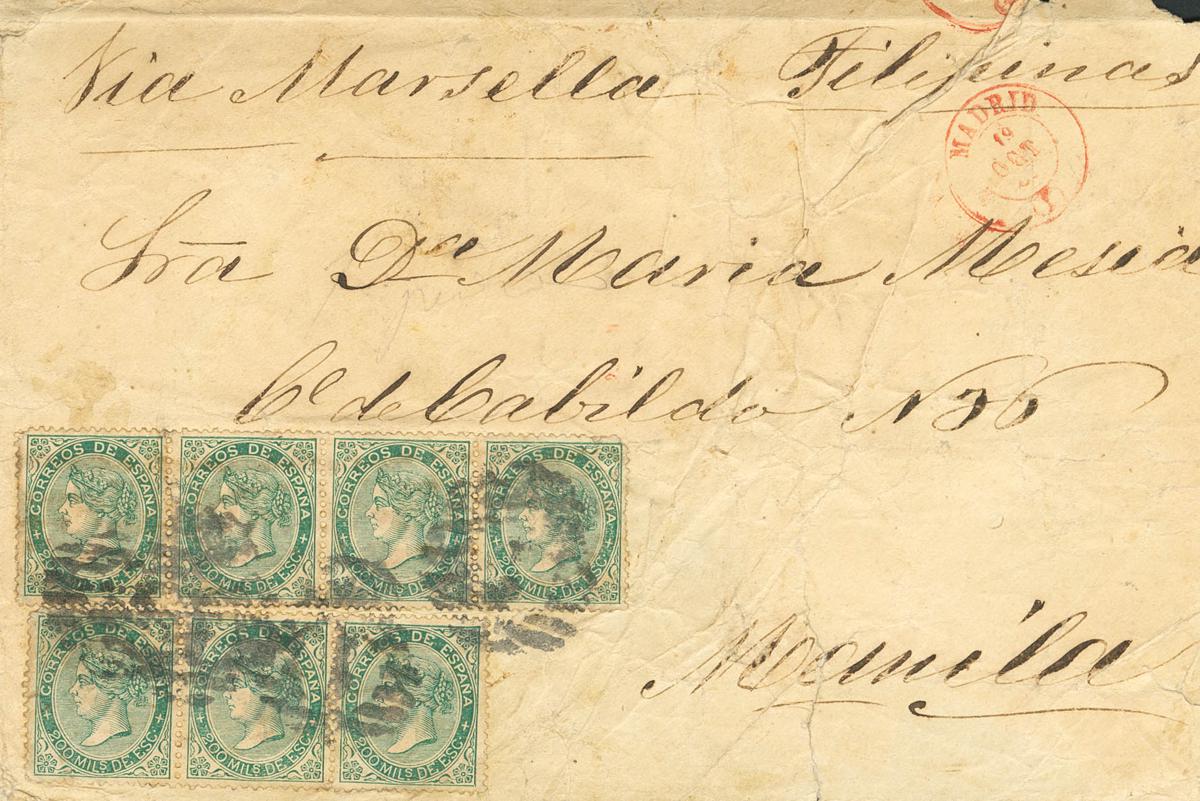 Via Marsella Filipinas
MADRID
19
OCT
Sra Da Maria Mesia
Ce de Cabildo N 36
CORREOS DE ESPAÑA CORREOS DE ESPAÑA CORREOS DE ESPAÑA CORREOS DE ESPAÑA
200 MILS DE ESC. 200 MILS DE ESC. 200 MILS DE ESC. 200 MILS DE ESC.
Manila
CORREOS DE ESPAÑA CORREOS DE ESPAÑA CORREOS DE ESPAÑA
200 MILS DE ESC. 200 MILS DE ESC. 200 MILS DE ESC.